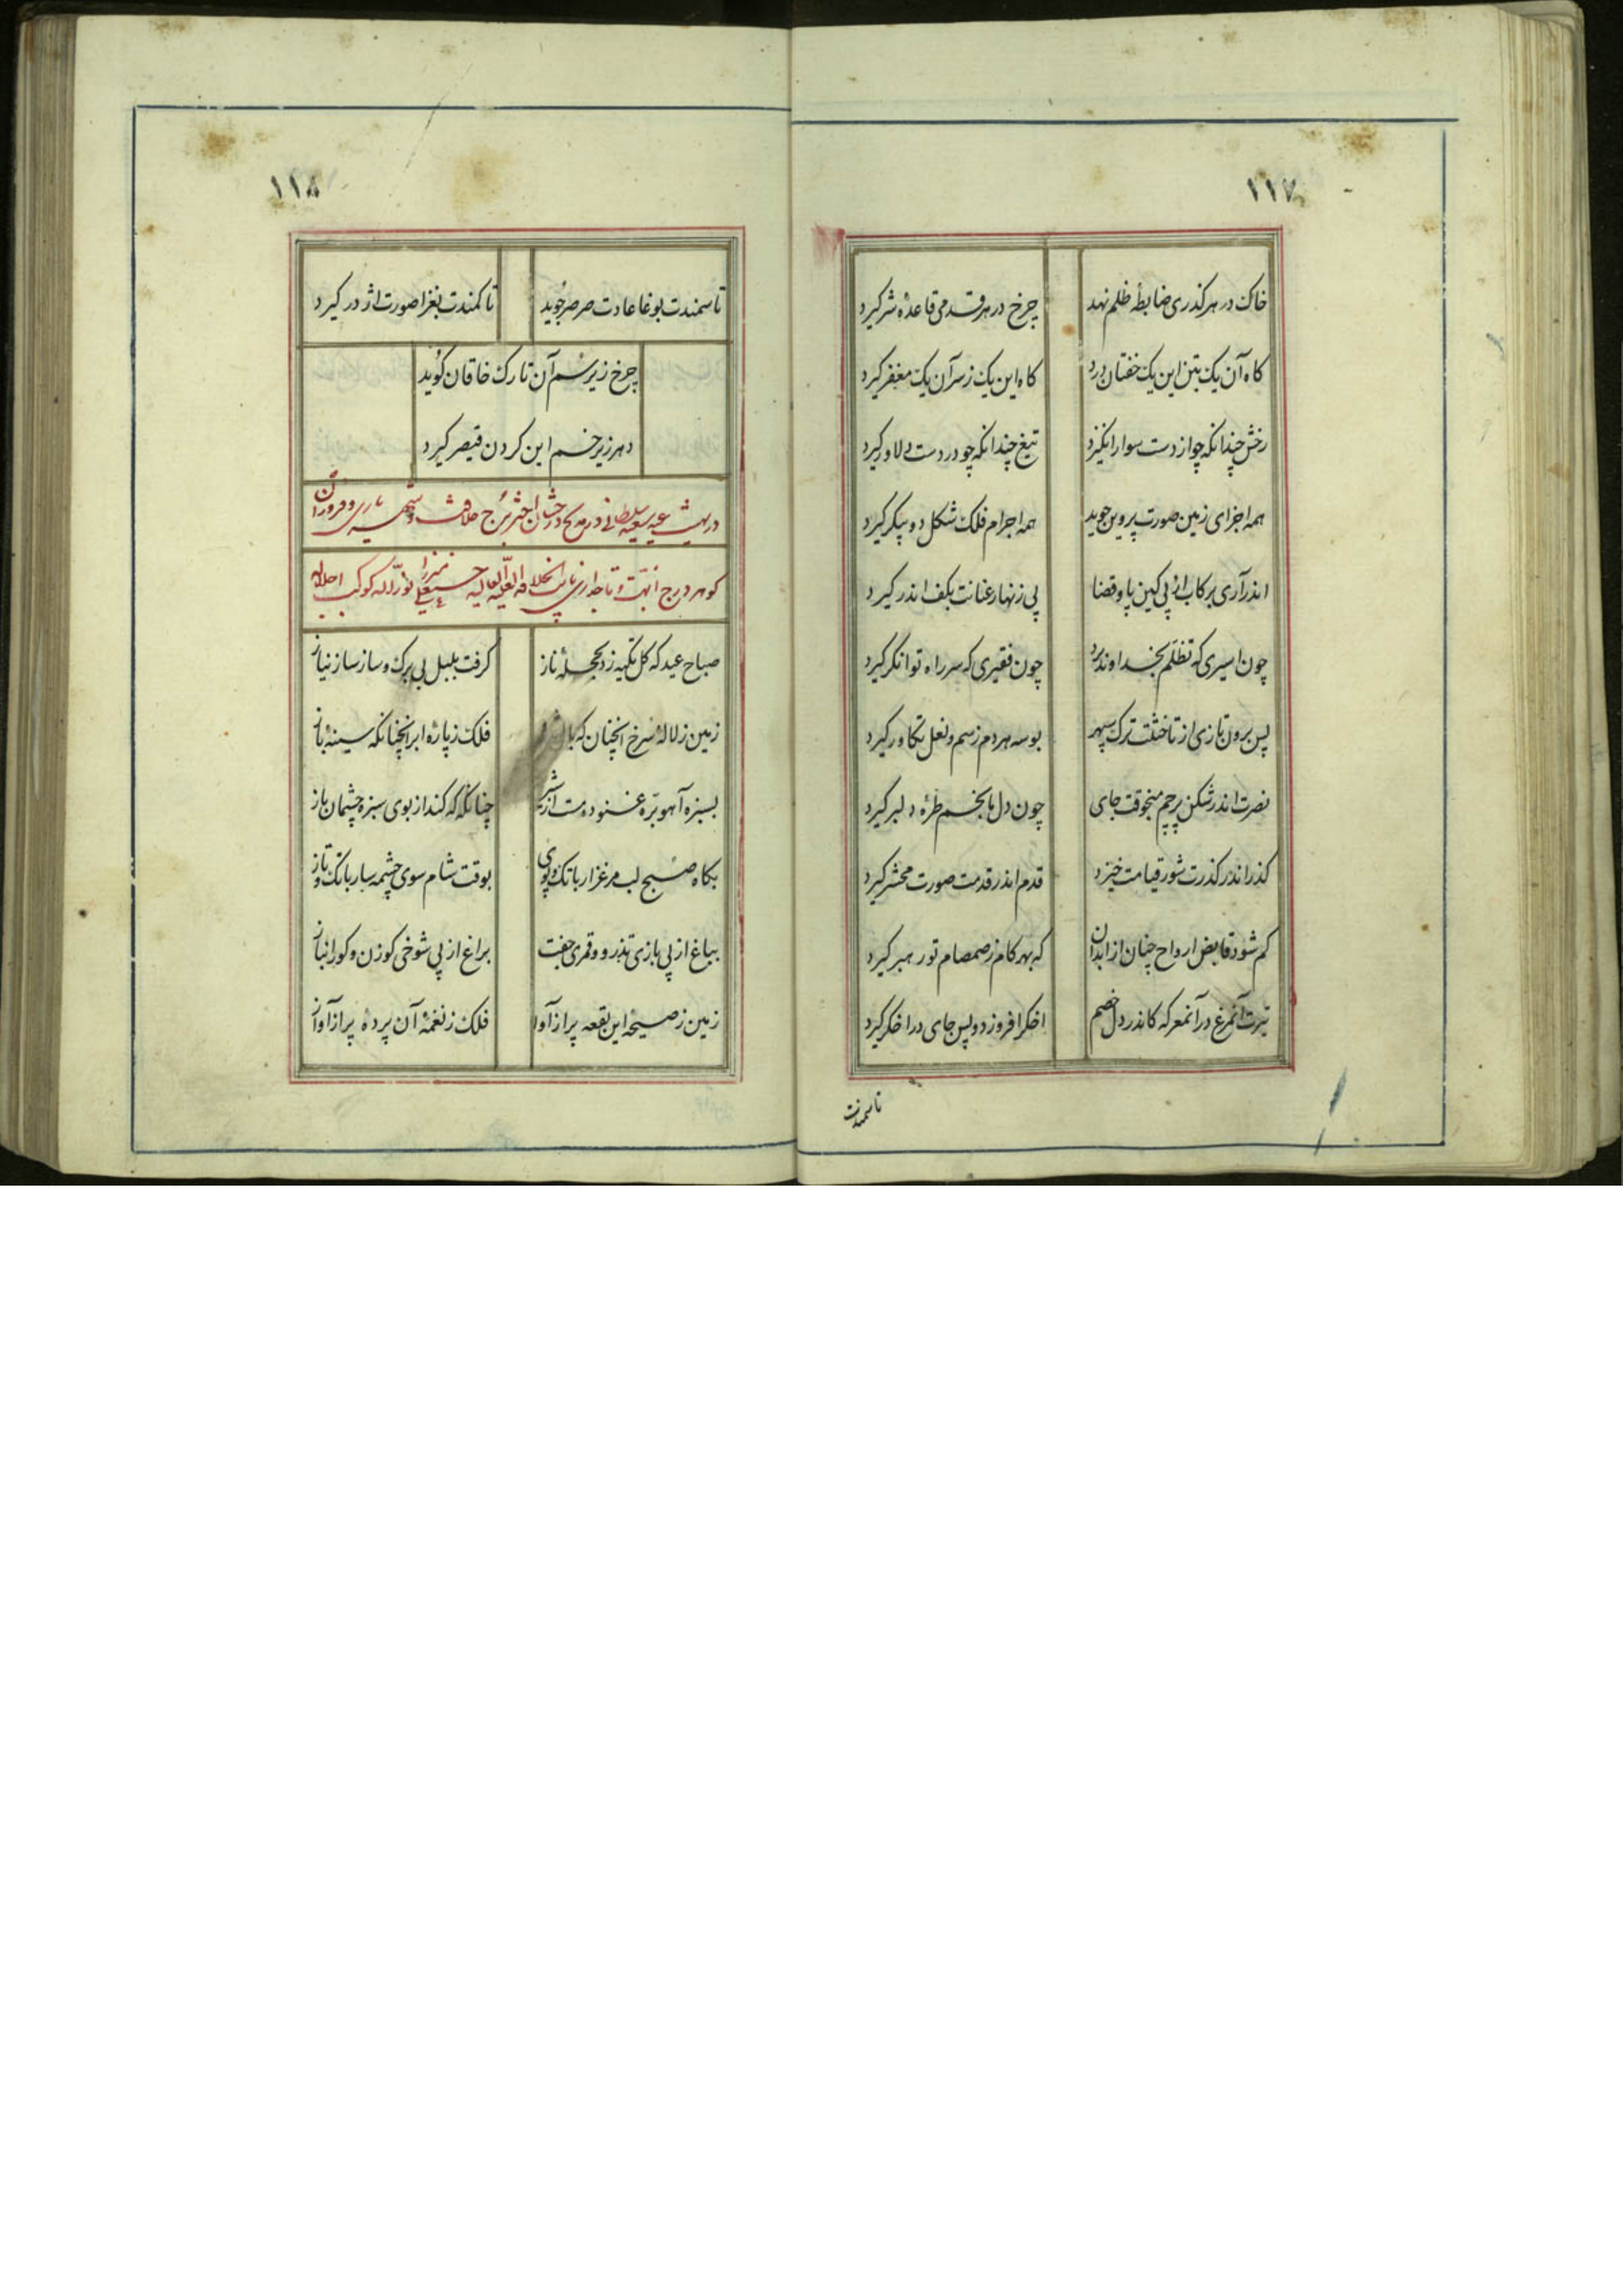 ۱۱۷
خاک در هر گذری ضابطه ظلم نهد چرخ در هر قدمی قاعدهٔ شر گیرد
گاه آن یک بتن این یک خفتان درد گاه این یک ز سر آن یک مغفر گیرد
رخش چندانکه چو از دست سوار انگیزد تیغ چندانکه چو در دست دلاور گیرد
همه اجزای زمین صورت پروین جوید همه اجرام فلک شکل دو پیکر گیرد
اندر آری برکاب از پی کین پا و قضا پی زنهار عنانت بکف اندر گیرد
چون اسیری که تظلم بخداوند برد چون فقیری که سر راه توانگر گیرد
پس برون تازی از تاختنت ترک سپهر بوسه هر دم ز سم و نعل تکاور گیرد
نصرت اندر شکن پرچم منجوقت جای چون دل ما بخم طرهٔ دلبر گیرد
گذر اندر گذرت شور قیامت خیزد قدم اندر قدمت صورت محشر گیرد
گم شود قابض ارواح چنان از ابدان که بهر گام ز صمصام تو رهبر گیرد
تیرت آنمرغ در آنمعرکه کاندر دل خصم اخگر افروزد و پس جای در اخگر گیرد
تا سمندت
۱۱۸
تا سمندت بوغا عادت صرصر جوید تا کمندت بغزا صورت اژدر گیرد
چرخ زیر سم آن تارک خاقان گوید
دهر زیر خم این گردن قیصر گیرد
در تهنیت عید سعید سلطانی و در مدح درخشان اختر برج خلافت و شهریاری و فروزان
گوهر درج ابهت و تاجداری نایب الخلافه العلیه العالیه حسینعلی میرزا نور الله کوکب اجلاله
صباح عید که گل تکیه زد بحجلهٔ ناز گرفت بلبل بی برگ و ساز ساز نیاز
زمین ز لالهٔ سرخ انچنان که فلک ز پارهٔ ابر انچنانکه سینهٔ باز
بسبزه آهو برّه غنوده مست چنانکه که کند از بوی سبزه چشمان باز
بگاه صبح لب مرغزار با تک و پوی بوقت شام سوی چشمه سار با تک و تاز
بباغ از پی بازی تذرو و قمری جفت براغ از پی شوخی گوزن و گور انباز
زمین ز صیحهٔ این بقعه پر از آوا فلک ز نغمهٔ آن پرده پر از آواز